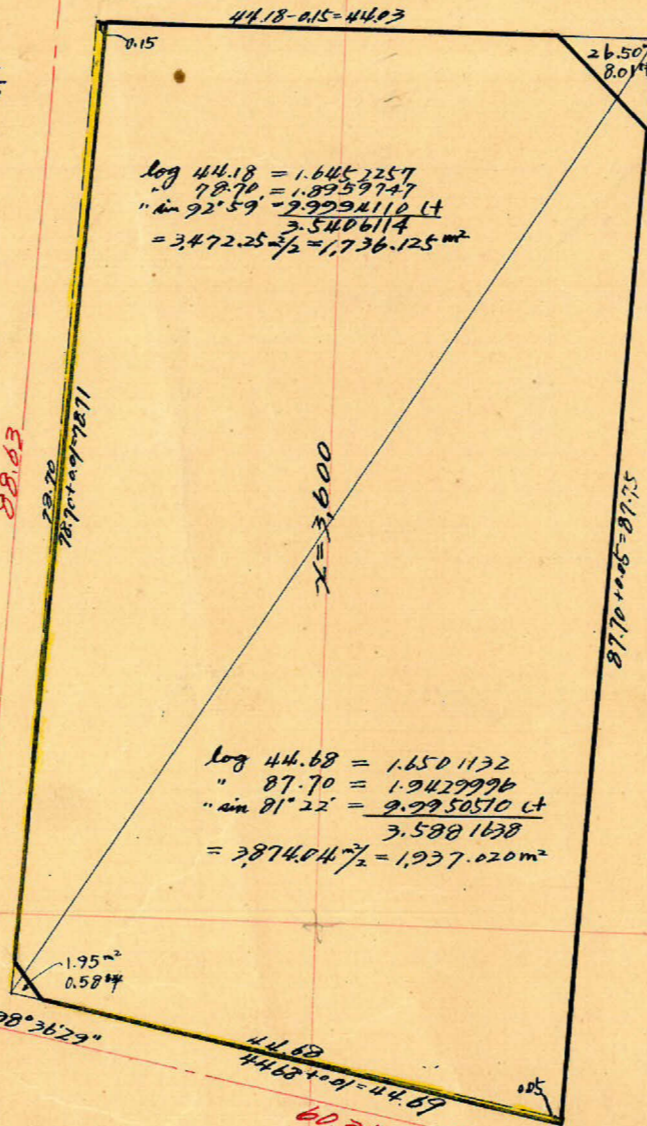 44.18-0.15=44.03
0.15
26.50
8.01坪
log 44.18 = 1.6452257
" 78.70 = 1.8959747
" sin 92°59' = 9.9994110 (+
3.5406114
= 3,472.25㎡/2 = 1,736.125 m²
88.63
78.70
78.70+0.01=78.71
x=3,600
87.70+0.05=87.75
log 44.68 = 1.6501132
" 87.70 = 1.9429996
" sin 81°22' = 9.9950510 (+
3.5881638
= 3,874.04㎡/2 = 1,937.020 m²
1.95 m²
0.58坪
98°36'29"
44.68
44.68+0.01=44.69
0.05